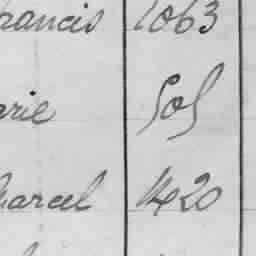 rancis 1063
arie 505
Marcel 1420